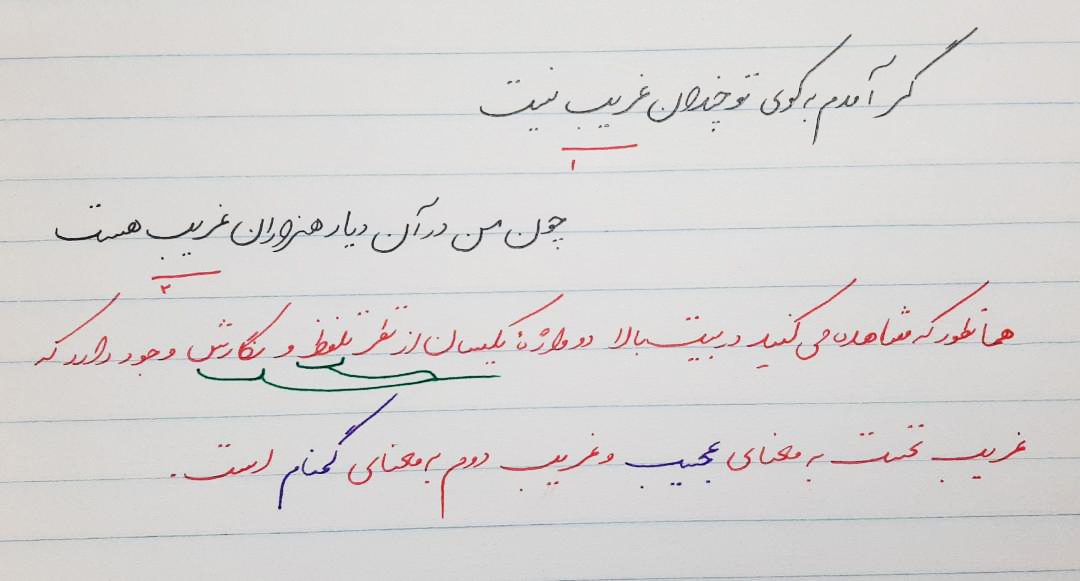 گر آمدم به کوی تو چندان غریب نیست
۱
چون من در آن دیار هزاران غریب هست
۲
همانطور که مشاهده می کنید در بیت بالا دو واژهٔ یکسان از نظر تلفظ و نگارش وجود دارد که
غریب نخست به معنای عجیب و غریب دوم به معنای گمنام است.